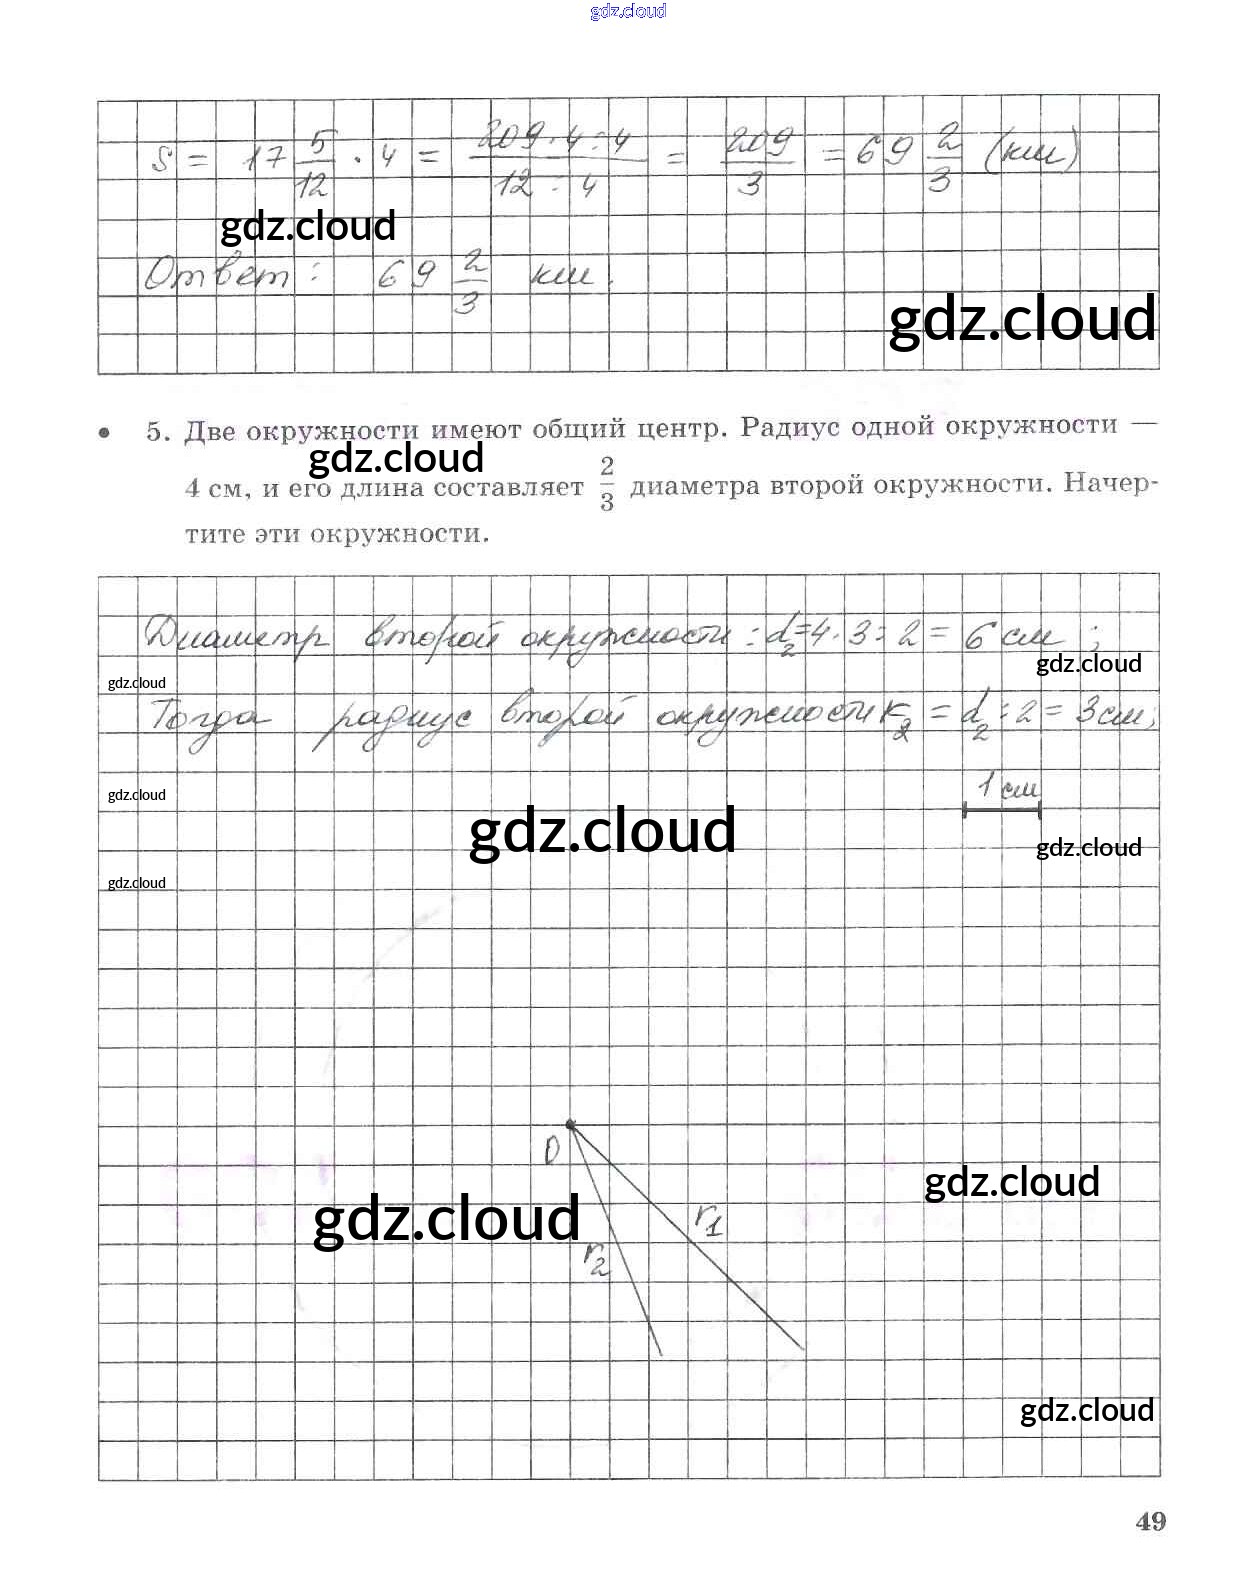 gdz.cloud
S = 17 5/12 · 4 = 209·4:4/12:4 = 209/3 = 69 2/3 (км)
gdz.cloud
Ответ: 69 2/3 км.
gdz.cloud
• 5. Две окружности имеют общий центр. Радиус одной окружности —
gdz.cloud
4 см, и его длина составляет 2/3 диаметра второй окружности. Начер-
тите эти окружности.
Диаметр второй окружности: d₂=4·3:2= 6 см ;
gdz.cloud
gdz.cloud
Тогда радиус второй окружности r₂ = d₂:2 = 3см;
1 см
gdz.cloud
gdz.cloud
gdz.cloud
gdz.cloud
O
gdz.cloud
gdz.cloud
r₁
r₂
gdz.cloud
49